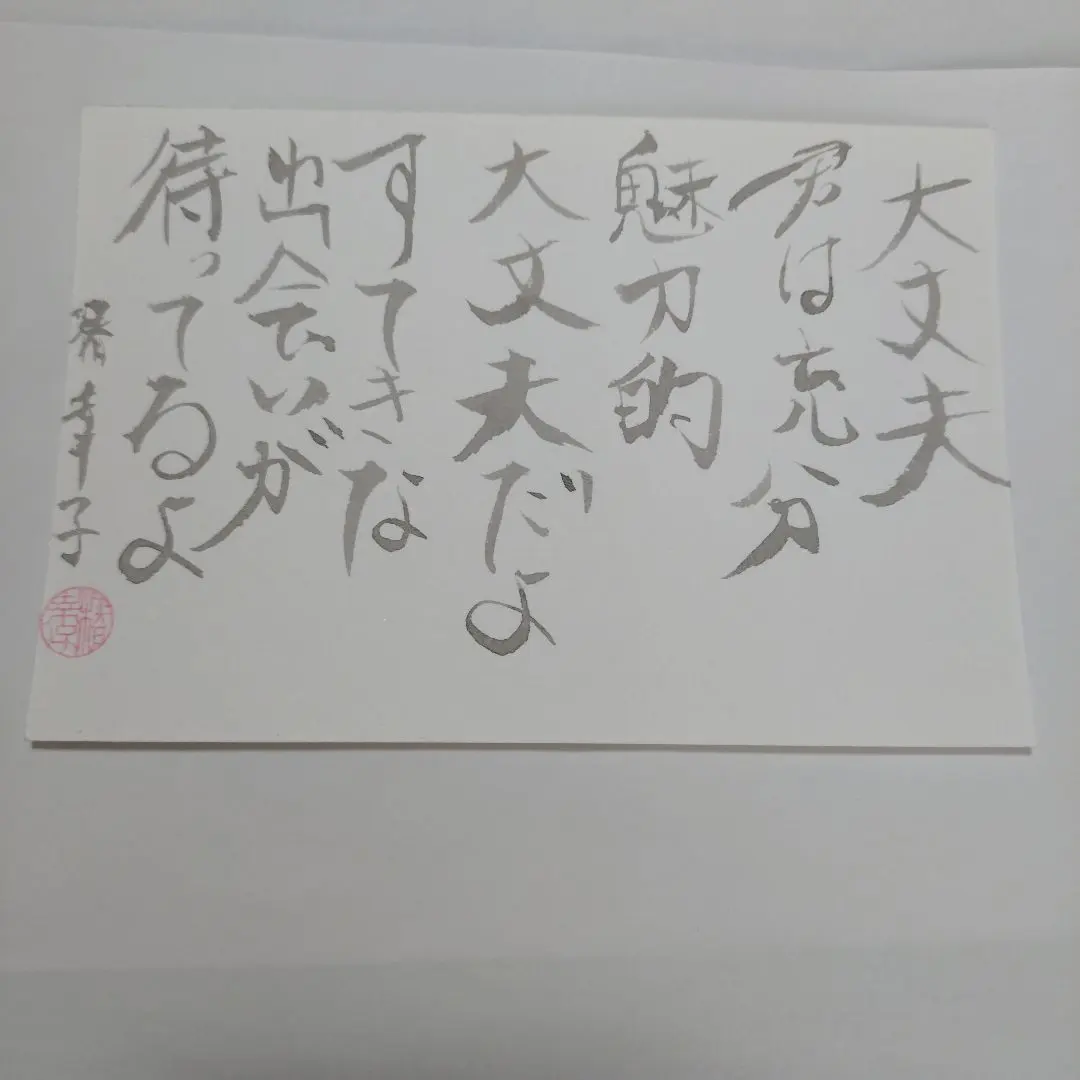 大丈夫
君は充分
魅力的
大丈夫だよ
すてきな
出会いが
待ってるよ
幸子